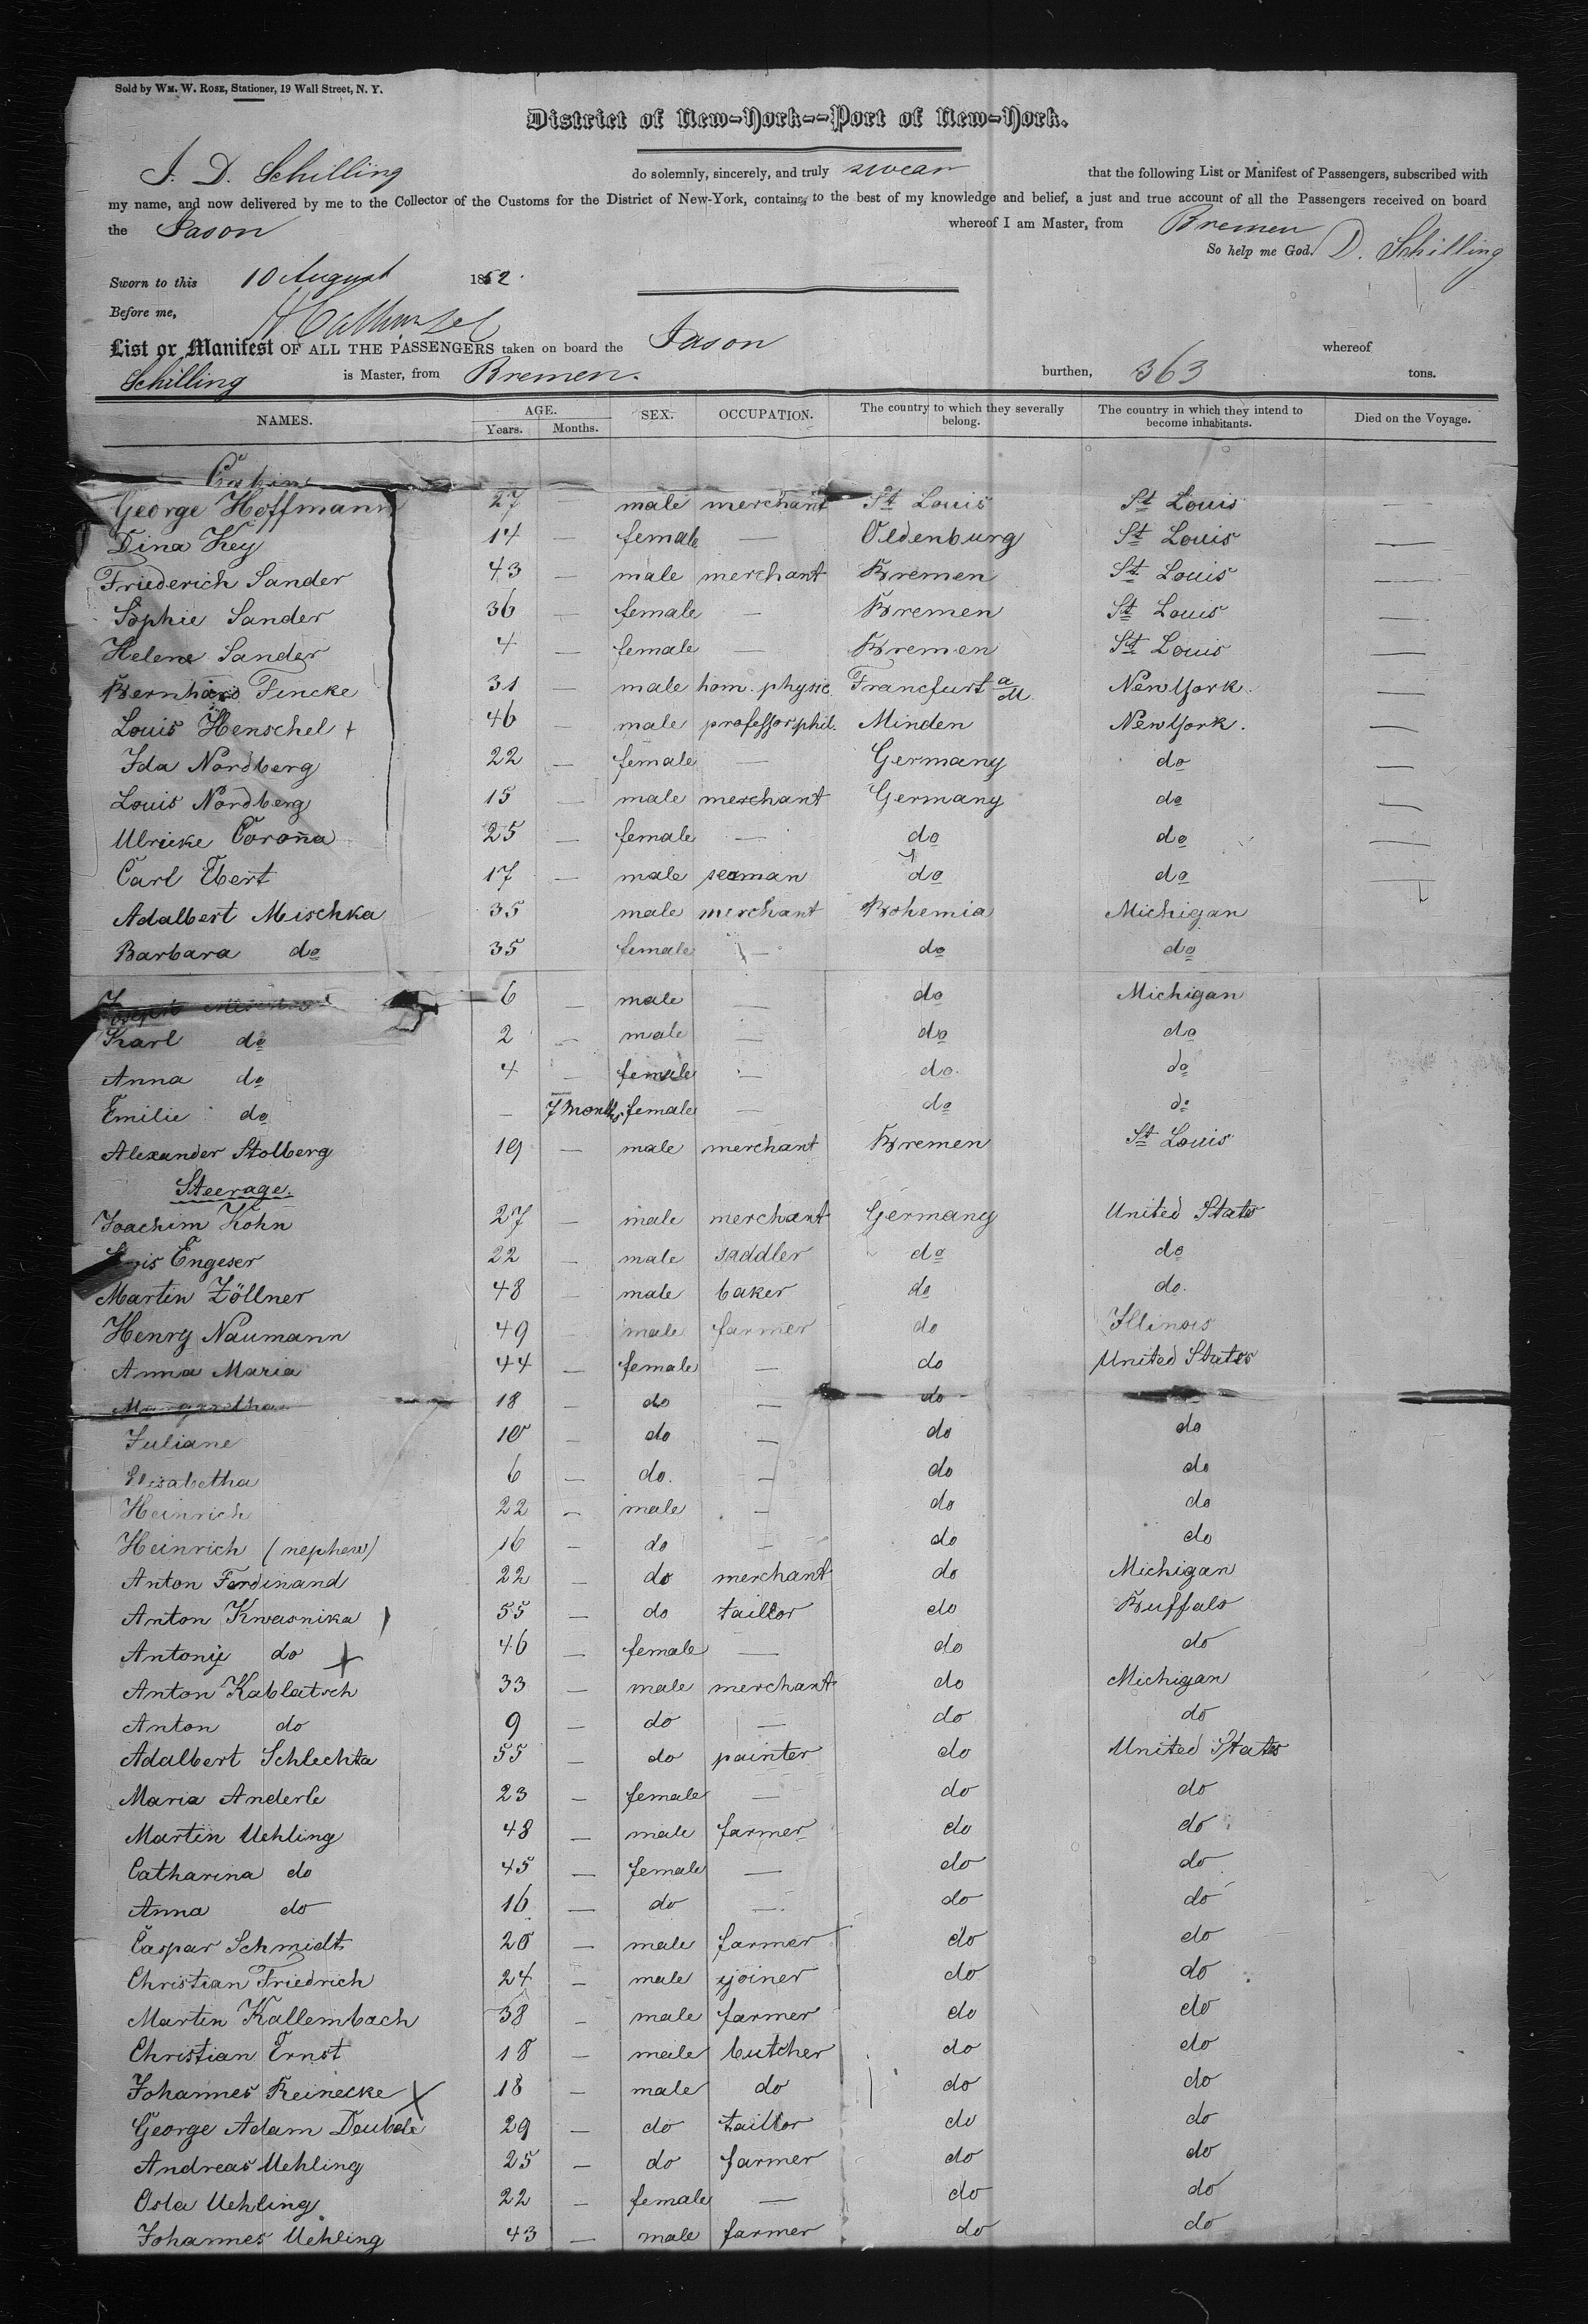 Sold by WM. W. ROSE, Stationer, 19 Wall Street, N. Y.
District of New-York--Port of New-York.
J. D. Schilling do solemnly, sincerely, and truly swear that the following List or Manifest of Passengers, subscribed with
my name, and now delivered by me to the Collector of the Customs for the District of New-York, contains, to the best of my knowledge and belief, a just and true account of all the Passengers received on board
the Jason whereof I am Master, from Bremen
So help me God. D. Schilling
Sworn to this 10 August 1852.
Before me,
List or Manifest OF ALL THE PASSENGERS taken on board the Jason whereof
Schilling is Master, from Bremen. burthen, 363 tons.
NAMES. AGE. Years. Months. SEX. OCCUPATION. The country to which they severally belong. The country in which they intend to become inhabitants. Died on the Voyage.
Cabin
George Hoffmann 27 — male merchant St Louis St Louis —
Dina Key 14 — female — Oldenburg St Louis —
Friederich Sander 43 — male merchant Bremen St Louis —
Sophie Sander 36 — female — Bremen St Louis —
Helene Sander 4 — female — Bremen St Louis —
Bernhard Fincke 31 — male hom. physic. Francfurt a/M. New York. —
Louis Henschel + 46 male professor phil. Minden New York. —
Ida Nordberg 22 — female — Germany do —
Louis Nordberg 15 — male merchant Germany do —
Ulricke Corona 25 — female — do do —
Carl Ebert 17 — male seaman do do —
Adalbert Mischka 35 male merchant Bohemia Michigan
Barbara do 35 female — do do
Joseph Mischka 6 — male — do Michigan
Karl do 2 — male — do do
Anna do 4 — female — do. do
Emilie do — 7 months female — do do
Alexander Stolberg 19 — male merchant Bremen St Louis
Steerage.
Joachim Kohn 27 — male merchant Germany United States
Engeser 22 — male saddler do do
Martin Zöllner 48 — male baker do do.
Henry Naumann 49 male farmer do Illinois
Anna Maria 44 — female — do United States
Margaretha 18 — do — do —
Juliane 10 — do — do do
Elisabetha 6 — do. — do do
Heinrich 22 — male — do do
Heinrich (nephew) 16 — do — do do
Anton Ferdinand 22 — do merchant do Michigan
Anton Kwasnika 55 — do taillor do Buffalo
Antonij do + 46 — female — do do
Anton Kablatsch 33 — male merchant do Michigan
Anton do 9 — do — do do
Adalbert Schlechta 55 — do painter do United States
Maria Anderle 23 — female — do do
Martin Uehling 48 — male farmer do do
Catharina do 45 — female — do do
Anna do 16 — do — do do
Caspar Schmidt 20 — male farmer do do
Christian Friedrich 24 — male joiner do do
Martin Kallembach 38 — male farmer do do
Christian Ernst 18 — male butcher do do
Johannes Reinecke X 18 — male do do do
George Adam 29 — do taillor do do
Andreas Uehling 25 — do farmer do do
Osla Uehling 22 — female — do do
Johannes Uehling 43 — male farmer do do